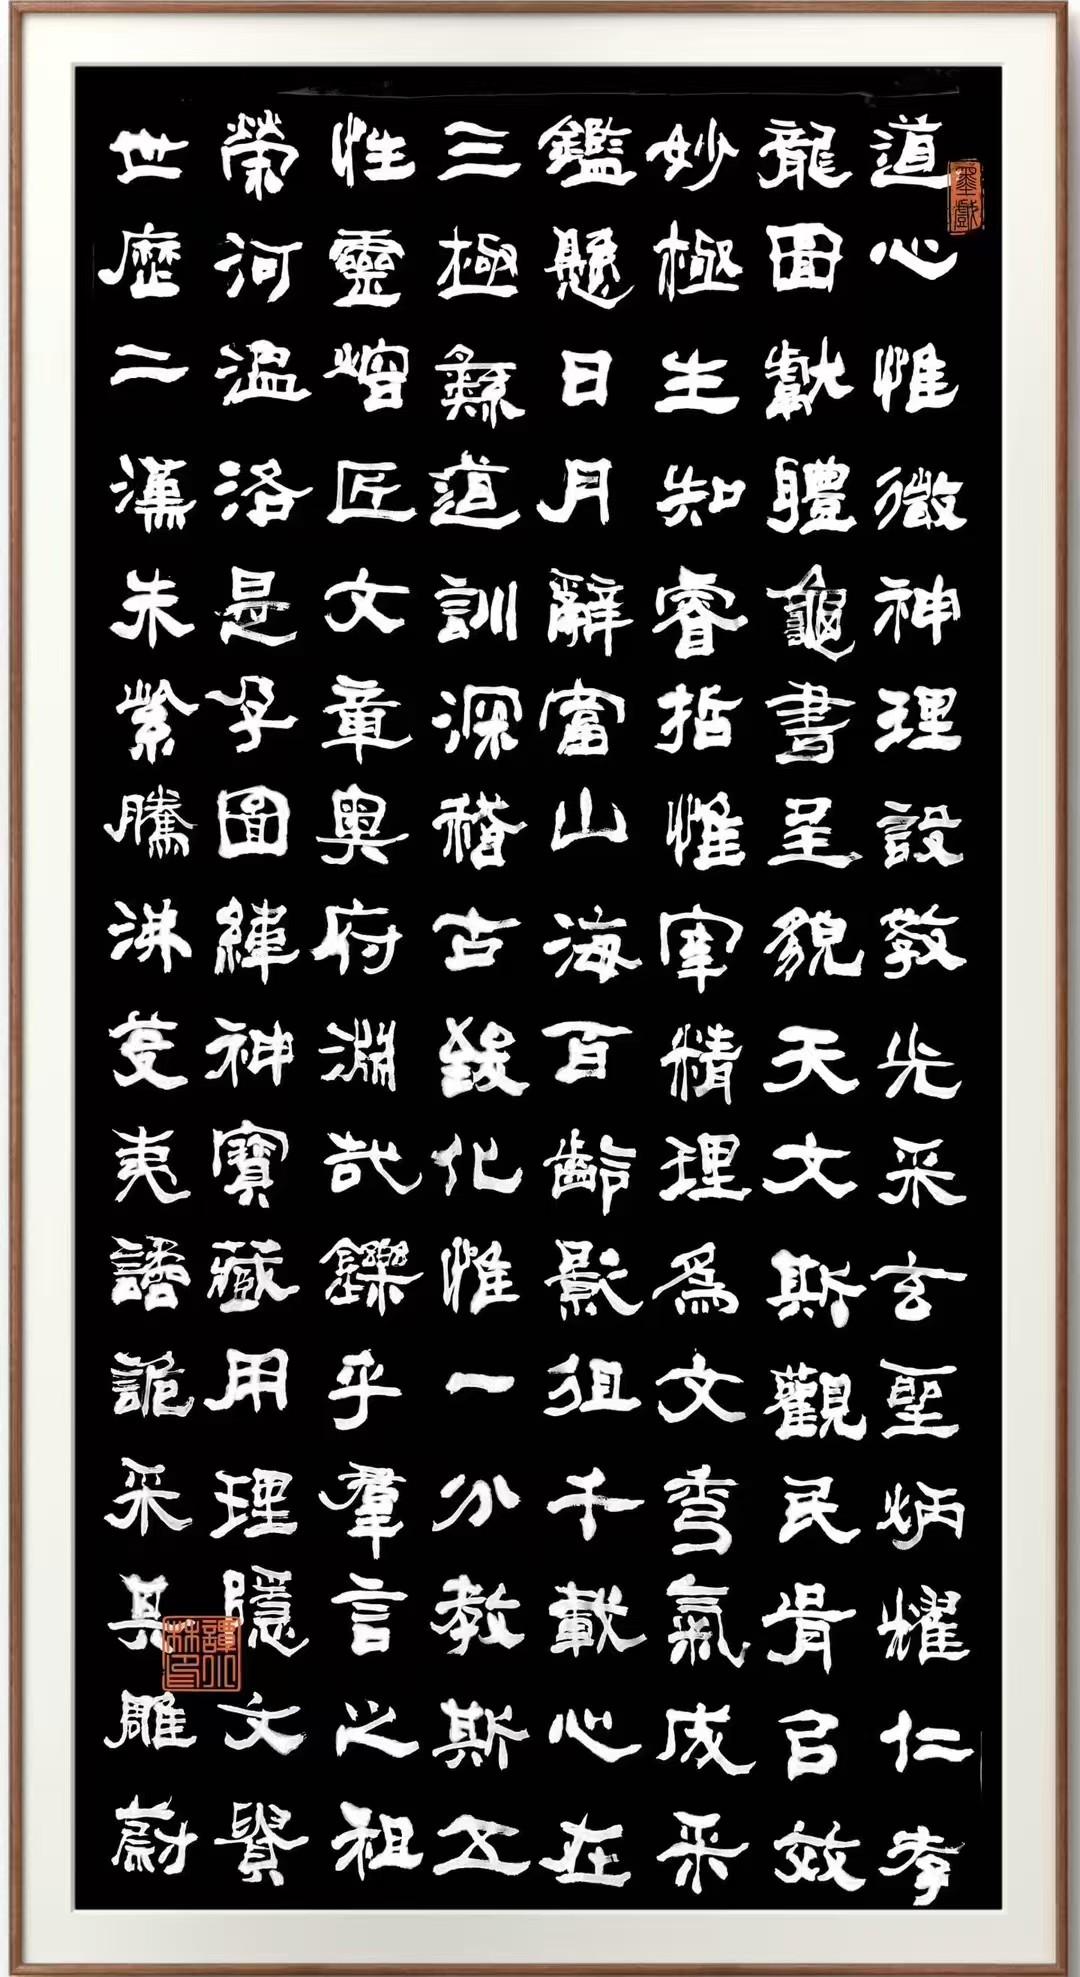 道心惟微神理設教光采玄聖炳耀仁孝
龍圖獻體龜書呈貌天文斯觀民胥以效
妙極生知睿哲惟宰精理為文秀氣成采
鑑懸日月辭富山海百齡影徂千載心在
三極彝道訓深稽古致化惟一分教斯五
性靈熔匠文章奧府淵哉鑠乎羣言之祖
榮河溫洛是孕圖緯神寶藏用理隱文貴
世歷二漢朱紫騰沸芟夷譎詭采其雕蔚
墨戲
譚小林印